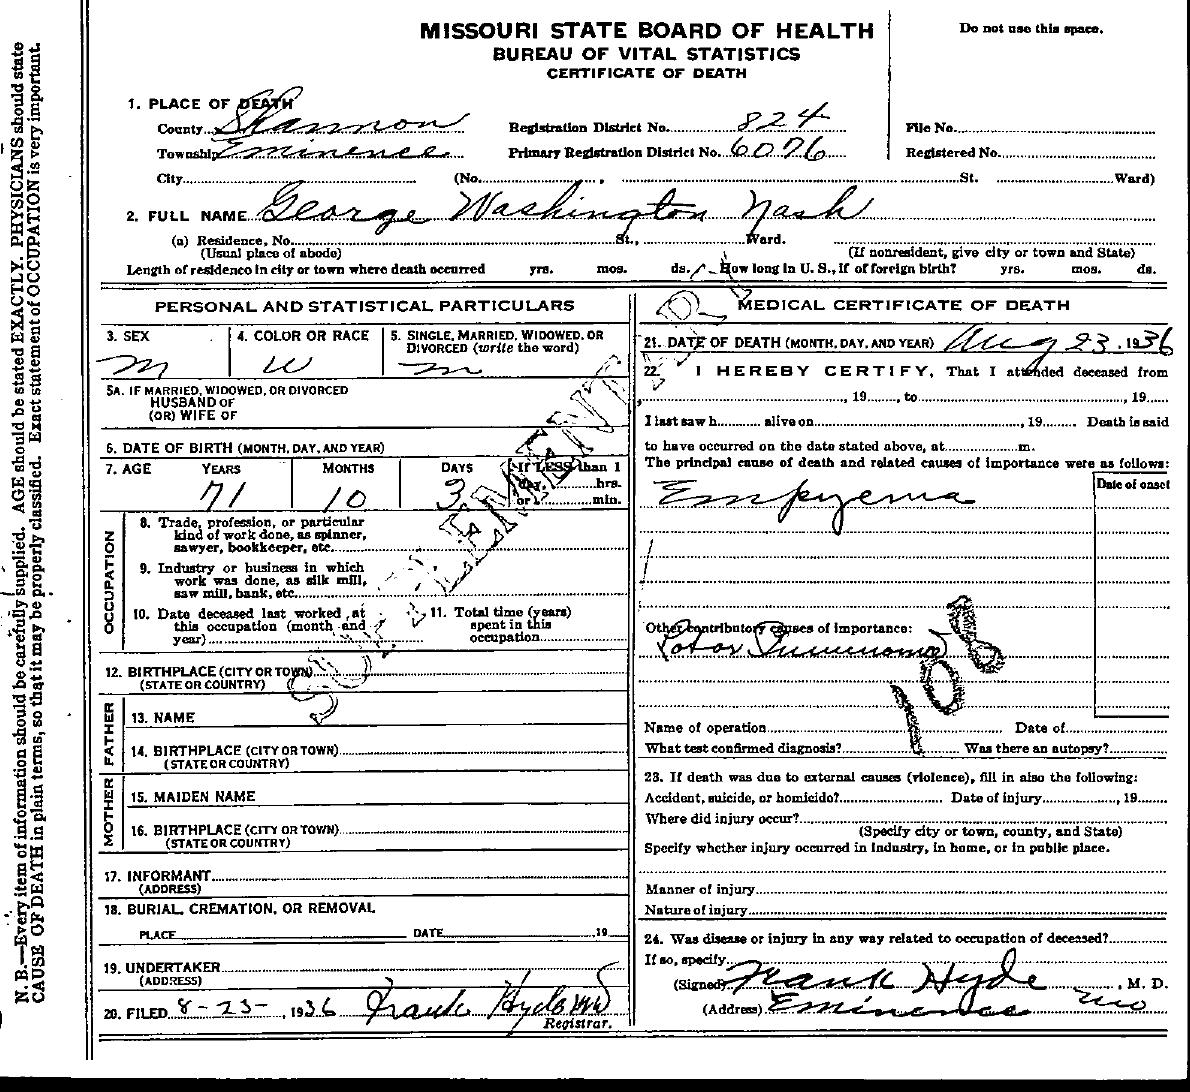 MISSOURI STATE BOARD OF HEALTH
BUREAU OF VITAL STATISTICS
CERTIFICATE OF DEATH
Do not use this space.
1. PLACE OF DEATH
County Shannon Registration District No. 824 File No.
Township Eminence Primary Registration District No. 6076 Registered No.
City (No. , St. Ward)
2. FULL NAME George Washington Nash
(a) Residence, No. St., Ward.
(Usual place of abode) (If nonresident, give city or town and State)
Length of residence in city or town where death occurred yrs. mos. ds. How long in U. S., if of foreign birth? yrs. mos. ds.
PERSONAL AND STATISTICAL PARTICULARS
3. SEX 4. COLOR OR RACE 5. SINGLE, MARRIED, WIDOWED, OR
DIVORCED (write the word)
M W M
5A. IF MARRIED, WIDOWED, OR DIVORCED
HUSBAND OF
(OR) WIFE OF
6. DATE OF BIRTH (MONTH, DAY, AND YEAR)
7. AGE YEARS MONTHS DAYS If LESS than 1
day, hrs.
71 10 3 or min.
OCCUPATION
8. Trade, profession, or particular
kind of work done, as spinner,
sawyer, bookkeeper, etc.
9. Industry or business in which
work was done, as silk mill,
saw mill, bank, etc.
10. Date deceased last worked at
this occupation (month and
year)
11. Total time (years)
spent in this
occupation
12. BIRTHPLACE (CITY OR TOWN)
(STATE OR COUNTRY)
FATHER
13. NAME
14. BIRTHPLACE (CITY OR TOWN)
(STATE OR COUNTRY)
MOTHER
15. MAIDEN NAME
16. BIRTHPLACE (CITY OR TOWN)
(STATE OR COUNTRY)
17. INFORMANT
(ADDRESS)
18. BURIAL, CREMATION, OR REMOVAL
PLACE DATE 19
19. UNDERTAKER
(ADDRESS)
20. FILED 8-23-, 1936 Frank Hyde MD
Registrar.
SUPPLEMENTARY
MEDICAL CERTIFICATE OF DEATH
21. DATE OF DEATH (MONTH, DAY, AND YEAR) Aug 23, 1936
22. I HEREBY CERTIFY, That I attended deceased from
, 19 , to , 19
I last saw h alive on , 19 Death is said
to have occurred on the date stated above, at m.
The principal cause of death and related causes of importance were as follows:
Date of onset
Empyema
Other contributory causes of importance:
Lobar Pneumonia
108
Name of operation Date of
What test confirmed diagnosis? Was there an autopsy?
23. If death was due to external causes (violence), fill in also the following:
Accident, suicide, or homicide? Date of injury , 19
Where did injury occur?
(Specify city or town, county, and State)
Specify whether injury occurred in industry, in home, or in public place.
Manner of injury
Nature of injury
24. Was disease or injury in any way related to occupation of deceased?
If so, specify
(Signed) Frank Hyde , M. D.
(Address) Eminence Mo
N. B.—Every item of information should be carefully supplied. AGE should be stated EXACTLY. PHYSICIANS should state
CAUSE OF DEATH in plain terms, so that it may be properly classified. Exact statement of OCCUPATION is very important.